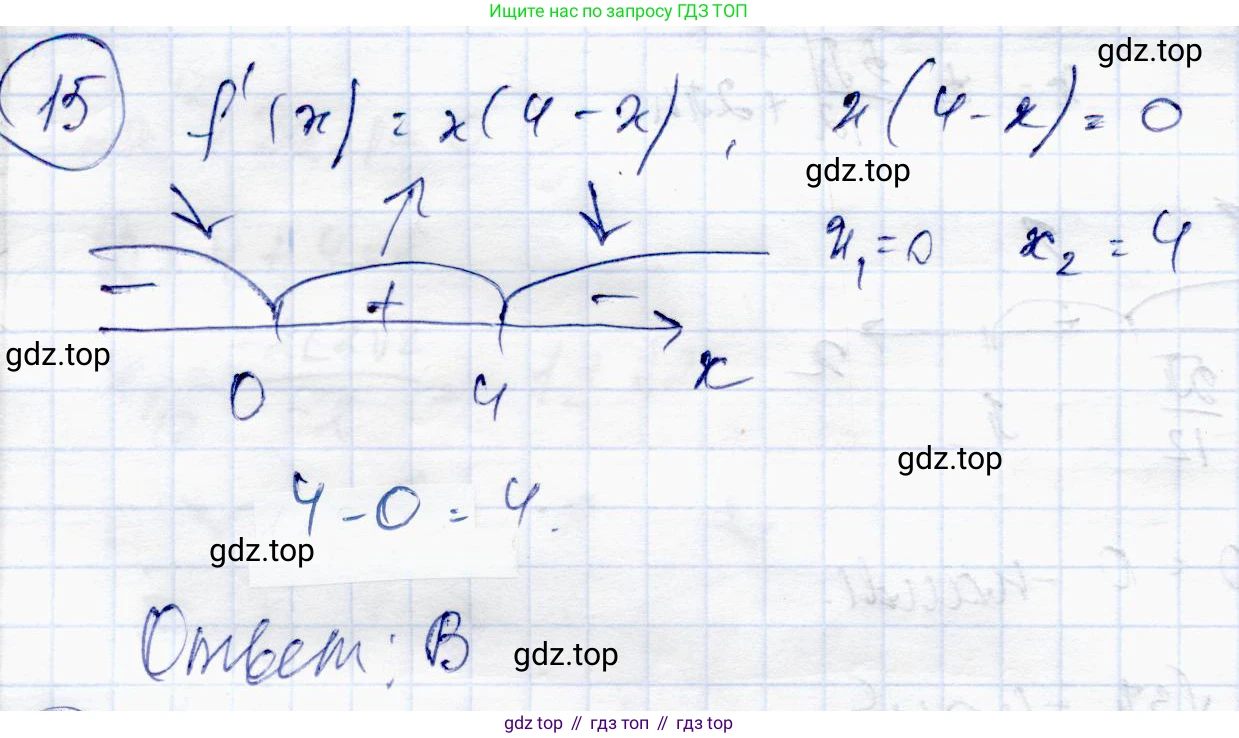 Ищите нас по запросу ГДЗ ТОП
gdz.top
15 f'(x) = x(4 - x), x(4 - x) = 0
gdz.top
x₁ = 0 x₂ = 4
- + -
gdz.top
0 4 x
gdz.top
4 - 0 = 4.
gdz.top
Ответ: В
gdz.top
gdz top // гдз топ // гдз top